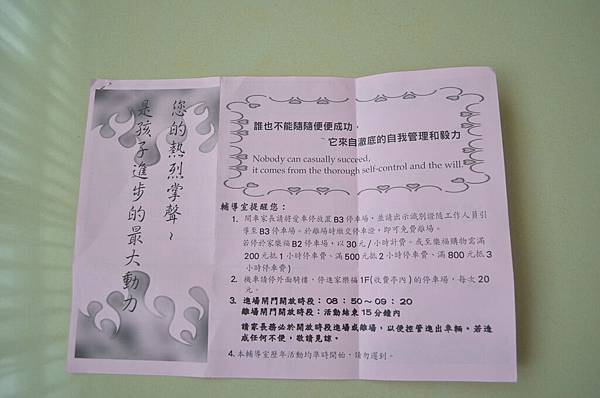 您的熱烈掌聲～
是孩子進步的最大動力
誰也不能隨隨便便成功，
它來自澈底的自我管理和毅力
Nobody can casually succeed,
it comes from the thorough self-control and the will.
輔導室提醒您：
1. 開車家長請將愛車停放置 B3 停車場，並請出示識別證隨工作人員引
導至 B3 停車場。於離場時繳交停車證，即可免費離場。
若停於家樂福 B2 停車場，以 30 元/小時計費。或至樂福購物需滿
200 元抵 1 小時停車費、滿 500 元抵 2 小時停車費、滿 800 元抵 3
小時停車費)
2. 機車請停外面騎樓，停進家樂福 1F(收費亭內)的停車場，每次 20
元。
3. 進場閘門開放時段：08：50～09：20
離場閘門開放時段：活動結束 15 分鐘內
請家長務必於開放時段進場或離場，以便控管進出車輛。若造
成任何不便，敬請見諒。
4. 本輔導室歷年活動均準時開始，請勿遲到。